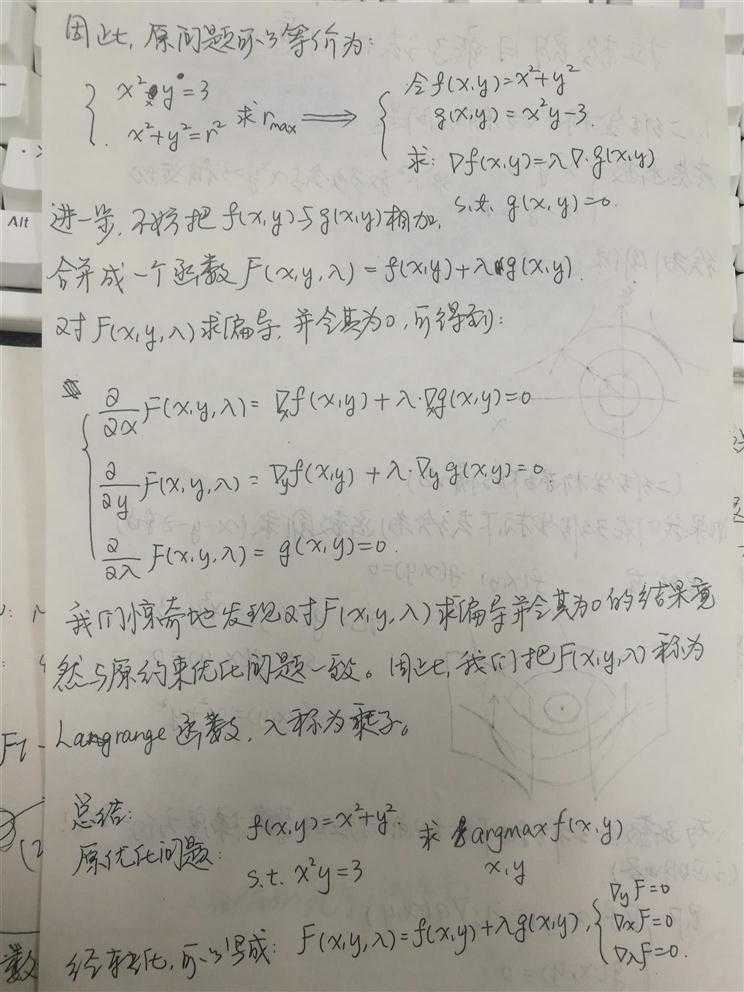 因此,原问题可以等价为:
{ x²y=3
x²+y²=r² 求r_max ⟹ { 令f(x,y)=x²+y²
g(x,y)=x²y-3.
求: ∇f(x,y)=λ∇·g(x,y)
s.t. g(x,y)=0.
进一步,不妨把f(x,y)与g(x,y)相加,
合并成一个函数F(x,y,λ)=f(x,y)+λg(x,y).
对F(x,y,λ)求偏导,并令其为0,可得到:
{ ∂/∂x F(x,y,λ)=∇ₓf(x,y)+λ·∇ₓg(x,y)=0
∂/∂y F(x,y,λ)=∇_yf(x,y)+λ·∇_y g(x,y)=0.
∂/∂λ F(x,y,λ)=g(x,y)=0.
我们惊奇地发现对F(x,y,λ)求偏导并令其为0的结果竟
然与原约束优化问题一致。因此,我们把F(x,y,λ)称为
Langrange函数,λ称为乘子。
总结:
原优化问题: f(x,y)=x²+y². 求 argmax f(x,y)
x,y
s.t. x²y=3
经转化,可以写成: F(x,y,λ)=f(x,y)+λg(x,y), { ∇_yF=0
∇ₓF=0
∇_λF=0.
Alt
数